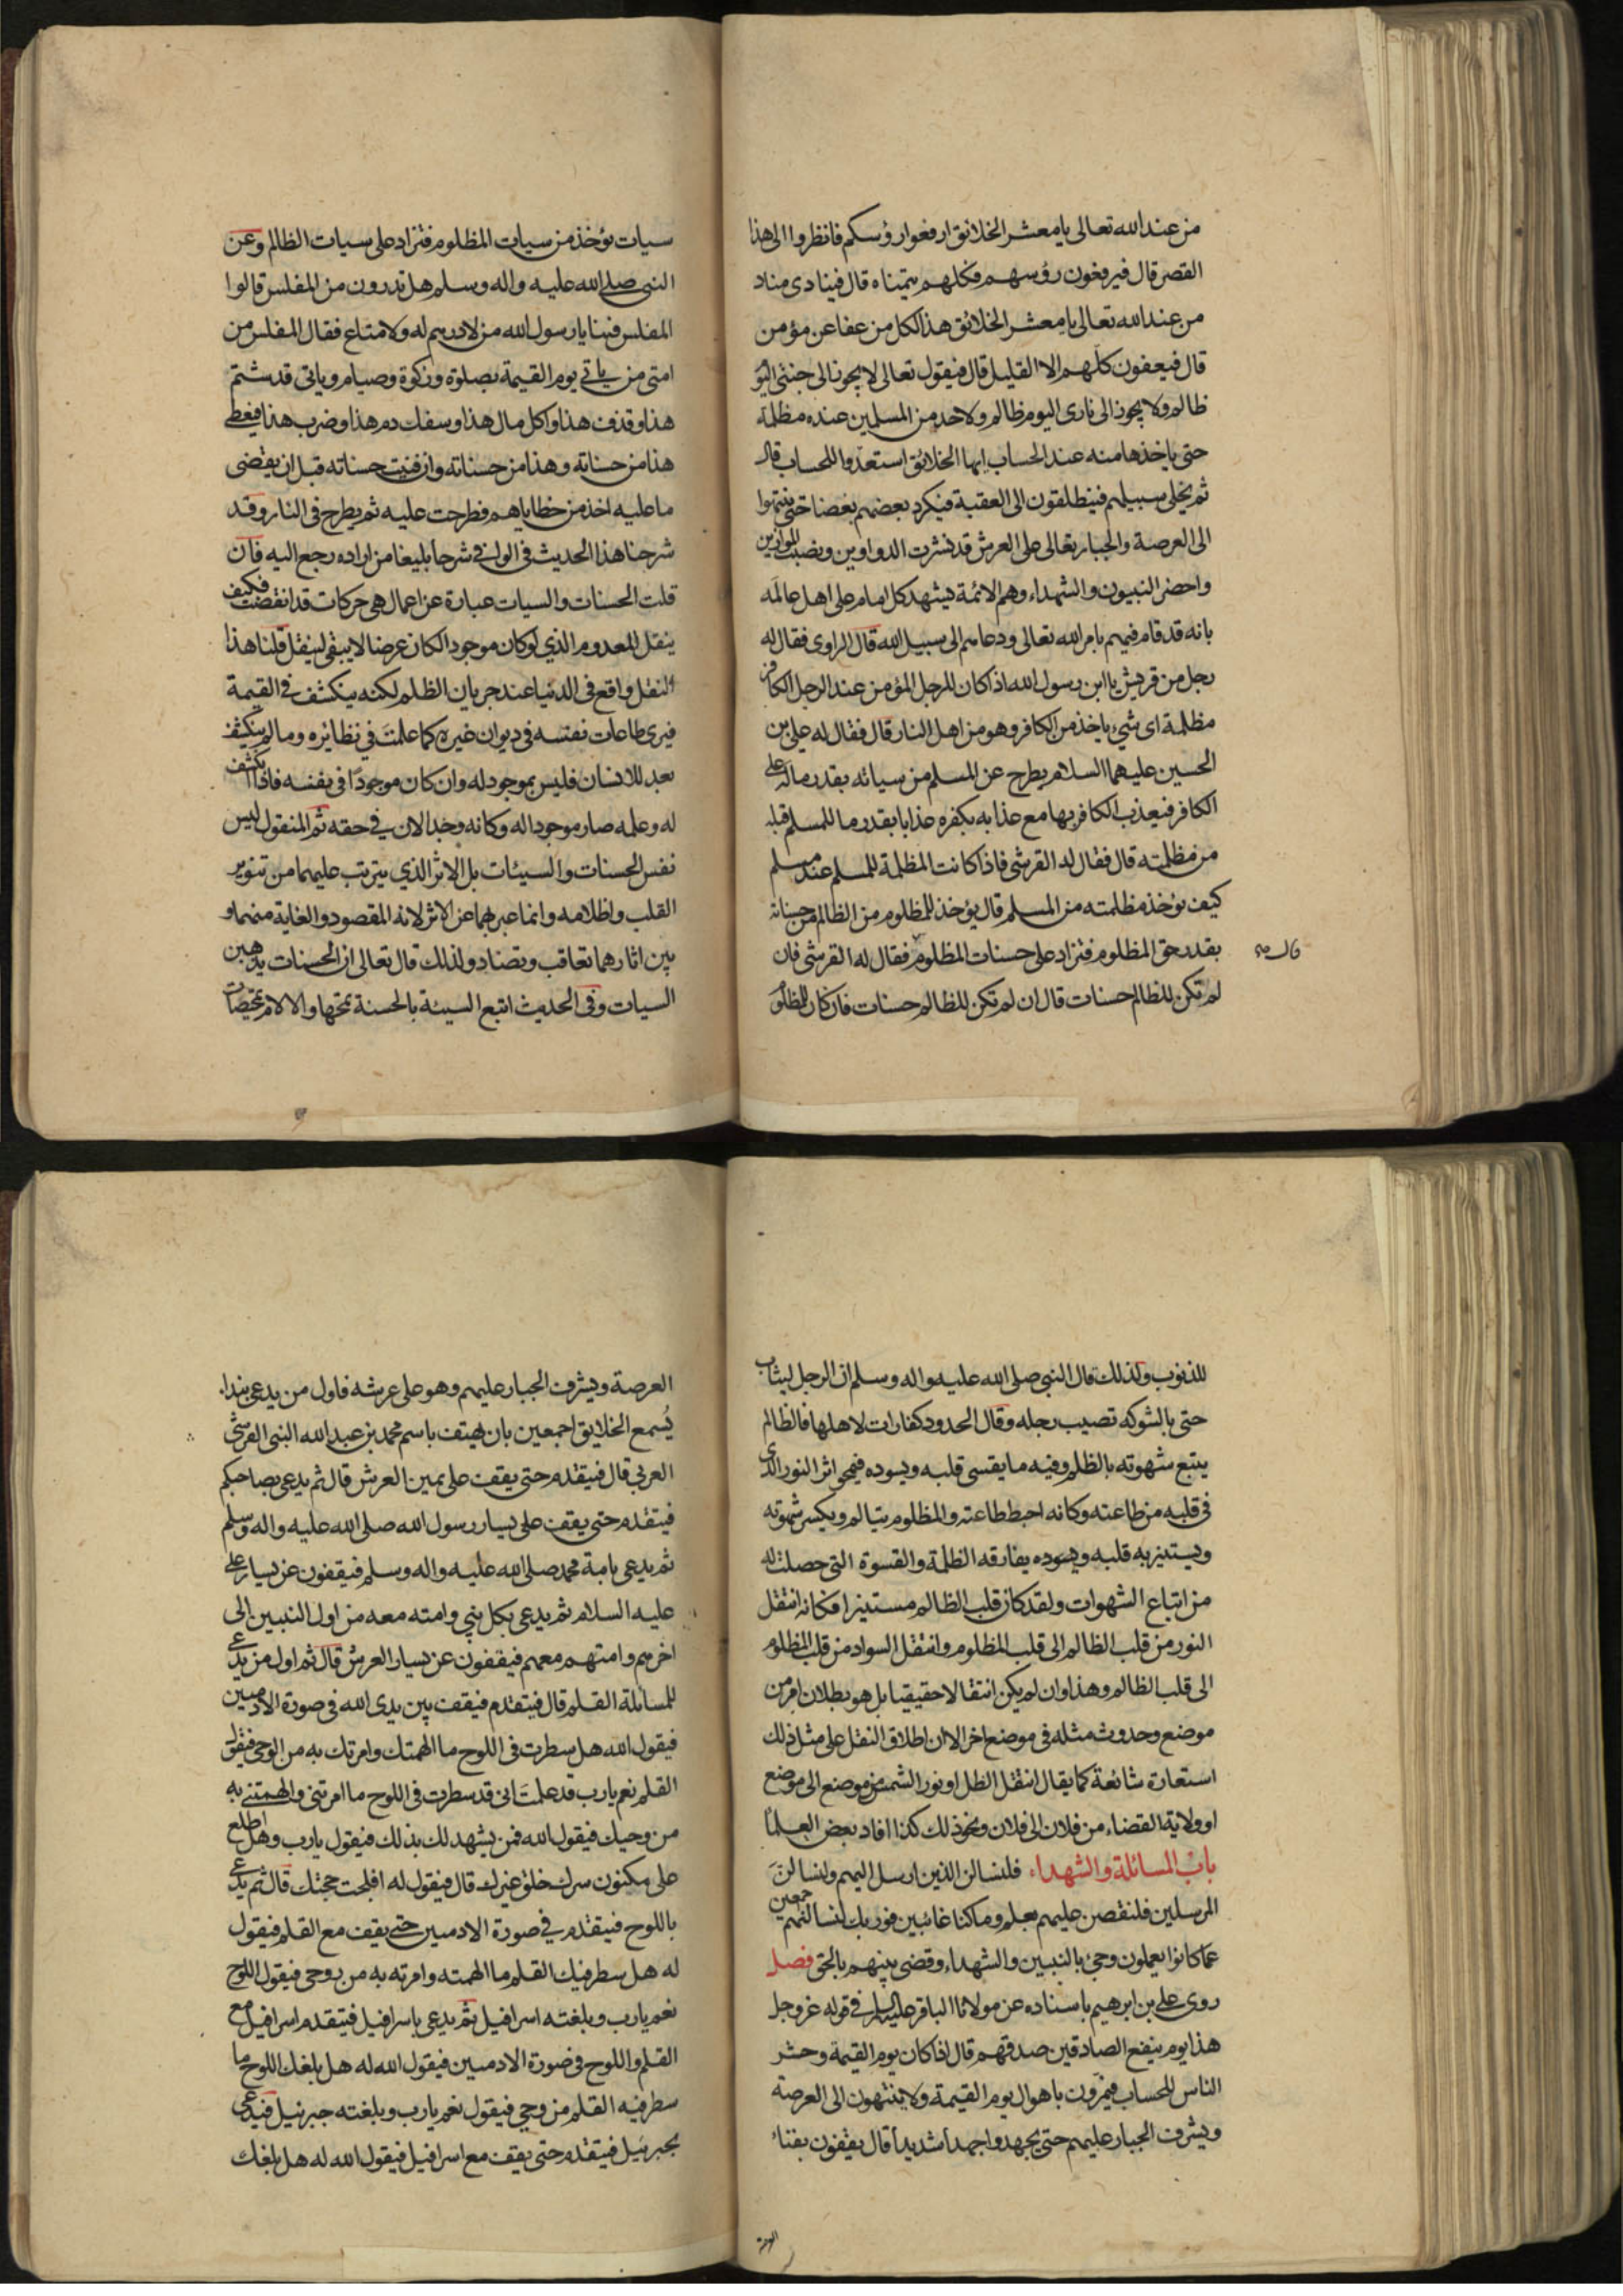 من عند الله تعالى يا معشر الخلائق ارفعوا رؤسكم فانظروا الى هذا
القصر قال فيرفعون رؤسهم فكلهم يتمناه قال فينادى مناد
من عند الله تعالى يا معشر الخلائق هذا لكل من عفا عن مؤمن
قال فيعفون كلهم الا القليل قال فيقول تعالى لا يجوز الى جنتى اليوم
ظالم ولا يجوز الى نارى اليوم ظالم ولاحد من المسلمين عنده مظلمة
حتى ياخذها منه عند الحساب ايها الخلائق استعدوا للحساب قال
ثم يخلى سبيلهم فينطلقون الى العقبة فيكرد بعضهم بعضا حتى ينتهوا
الى العرصة والجبار تعالى على العرش قد نشرت الدواوين ونصبت الموازين
واحضر النبيون والشهداء وهم الائمة يشهد كل امام على اهل عالمه
بانه قد قام فيهم بامر الله تعالى ودعاهم الى سبيل الله قال الراوى فقال له
رجل من قريش يا ابن رسول الله اذا كان للرجل المؤمن عند الرجل الكافر
مظلمة اى شيء ياخذ من الكافر وهو من اهل النار قال فقال له على بن
الحسين عليهما السلام يطرح عن المسلم من سيئاته بقدر ماله على
الكافر فيعذب الكافر بها مع عذابه بكفره عذابا بقدر ما للمسلم قبله
من مظلمته قال فقال له القرشى فاذا كانت المظلمة للمسلم عند مسلم
كيف تؤخذ مظلمته من المسلم قال يؤخذ للمظلوم من الظالم من حسناته
بقدر حق المظلوم فتزاد على حسنات المظلوم فقال له القرشى فان
قال
لم تكن للظالم حسنات قال ان لم تكن للظالم حسنات فان كان للمظلوم
سيات تؤخذ من سيات المظلوم فتزاد على سيات الظالم وعن
النبى صلى الله عليه واله وسلم هل تدرون من المفلس قالوا
المفلس فينا يا رسول الله من لا درهم له ولا متاع فقال المفلس من
امتى من ياتى يوم القيمة بصلوة وزكوة وصيام وياتى قد شتم
هذا وقذف هذا واكل مال هذا وسفك دم هذا وضرب هذا فيعطى
هذا من حسناته وهذا من حسناته وان فنيت حسناته قبل ان يقضى
ما عليه اخذ من خطاياهم فطرحت عليه ثم يطرح فى النار وقد
شرحنا هذا الحديث فى الوافى شرحا بليغا من اراده رجع اليه فان
قلت الحسنات والسيات عبارة عن اعمال هى حركات قد انقضت فكيف
ينقل المعدوم الذي لو كان موجودا لكان عرضا لا يبقى لينقل قلنا هذا
النقل واقع فى الدنيا عند جريان الظلم لكنه ينكشف فى القيمة
فيرى طاعات نفسه فى ديوان غيره كما علمت فى نظائره وما لم ينكشف
بعد للانسان فليس بموجود له وان كان موجودا فى نفسه فاذا انكشف
له وعلمه صار موجودا له وكانه وجد الان فى حقه ثم المنقول ليس
نفس الحسنات والسيئات بل الاثر الذي يترتب عليهما من تنوير
القلب واظلامه وانما عبر بهما عن الاثر لانه المقصود والغاية منهما و
بين اثارهما تعاقب وتضاد ولذلك قال تعالى ان الحسنات يذهبن
السيات وفى الحديث اتبع السيئة بالحسنة تمحها والالام تمحيصات
للذنوب ولذلك قال النبى صلى الله عليه واله وسلم ان الرجل ليثاب
حتى بالشوكه تصيب رجله وقال الحدود كفارات لاهلها فالظالم
يتبع شهوته بالظلم وفيه ما يقسى قلبه ويسوده فيمحو اثر النور الذى
فى قلبه من طاعته وكانه احبط طاعته والمظلوم يتالم ويكسر شهوته
ويستنير به قلبه ويسوده يفارقه الظلمة والقسوة التى حصلت له
من اتباع الشهوات ولقد كان قلب الظالم مستنيرا فكانه انتقل
النور من قلب الظالم الى قلب المظلوم وانتقل السواد من قلب المظلوم
الى قلب الظالم وهذا وان لم يكن انتقالا حقيقيا بل هو بطلان امر من
موضع وحدوث مثله فى موضع اخر الا ان اطلاق النقل على مثل ذلك
استعارة شائعة كما يقال انتقل الظل او نور الشمس من موضع الى موضع
او ولاية القضاء من فلان الى فلان ونحو ذلك كذا افاد بعض العلماء
باب المسائلة والشهداء فلنسالن الذين ارسل اليهم ولنسالن
المرسلين فلنقصن عليهم بعلم وما كنا غائبين فوربك لنسالنهم اجمعين
عما كانوا يعملون وجئ بالنبيين والشهداء وقضى بينهم بالحق فصل
روى على بن ابرهيم باسناده عن مولانا الباقر عليه السلم فى قوله عز وجل
هذا يوم ينفع الصادقين صدقهم قال اذا كان يوم القيمة وحشر
الناس للحساب فيمرون باهوال يوم القيمة ولا ينتهون الى العرصة
ويشرف الجبار عليهم حتى يجهدوا جهدا شديدا قال يقفون بفناء
العرصة
العرصة ويشرف الجبار عليهم وهو على عرشه فاول من يدعى بنداء
يُسمع الخلايق اجمعين بان يهتف باسم محمد بن عبد الله النبى القرشى
العربى قال فيتقدم حتى يقف على يمين العرش قال ثم يدعى بصاحبكم
فيتقدم حتى يقف على يسار رسول الله صلى الله عليه واله وسلم
ثم يدعى بامة محمد صلى الله عليه واله وسلم فيقفون عن يسار على
عليه السلام ثم يدعى بكل نبى وامته معه من اول النبيين الى
اخرهم وامتهم معهم فيقفون عن يسار العرش قال ثم اول من يدعى
للمسائلة القلم قال فيتقدم فيقف بين يدى الله فى صورة الادميين
فيقول الله هل سطرت فى اللوح ما الهمتك وامرتك به من الوحى فيقول
القلم نعم يا رب قد علمت انى قد سطرت فى اللوح ما امرتنى والهمتنى به
من وحيك فيقول الله فمن يشهد لك بذلك فيقول يا رب وهل اطلع
على مكنون سرك خلق غيرك قال فيقول له افلجت حجتك قال ثم يدعى
باللوح فيتقدم فى صورة الادميين حتى يقف مع القلم فيقول
له هل سطر فيك القلم ما الهمته وامرته به من وحى فيقول اللوح
نعم يا رب وبلغته اسرافيل ثم يدعى باسرافيل فيتقدم اسرافيل مع
القلم واللوح فى صورة الادميين فيقول الله له هل بلغك اللوح ما
سطر فيه القلم من وحى فيقول نعم يا رب وبلغته جبرئيل فيدعى
بجبرئيل فيتقدم حتى يقف مع اسرافيل فيقول الله له هل بلغك